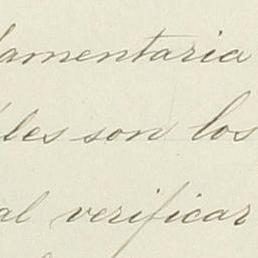 lamentaria
les son los
al verificar